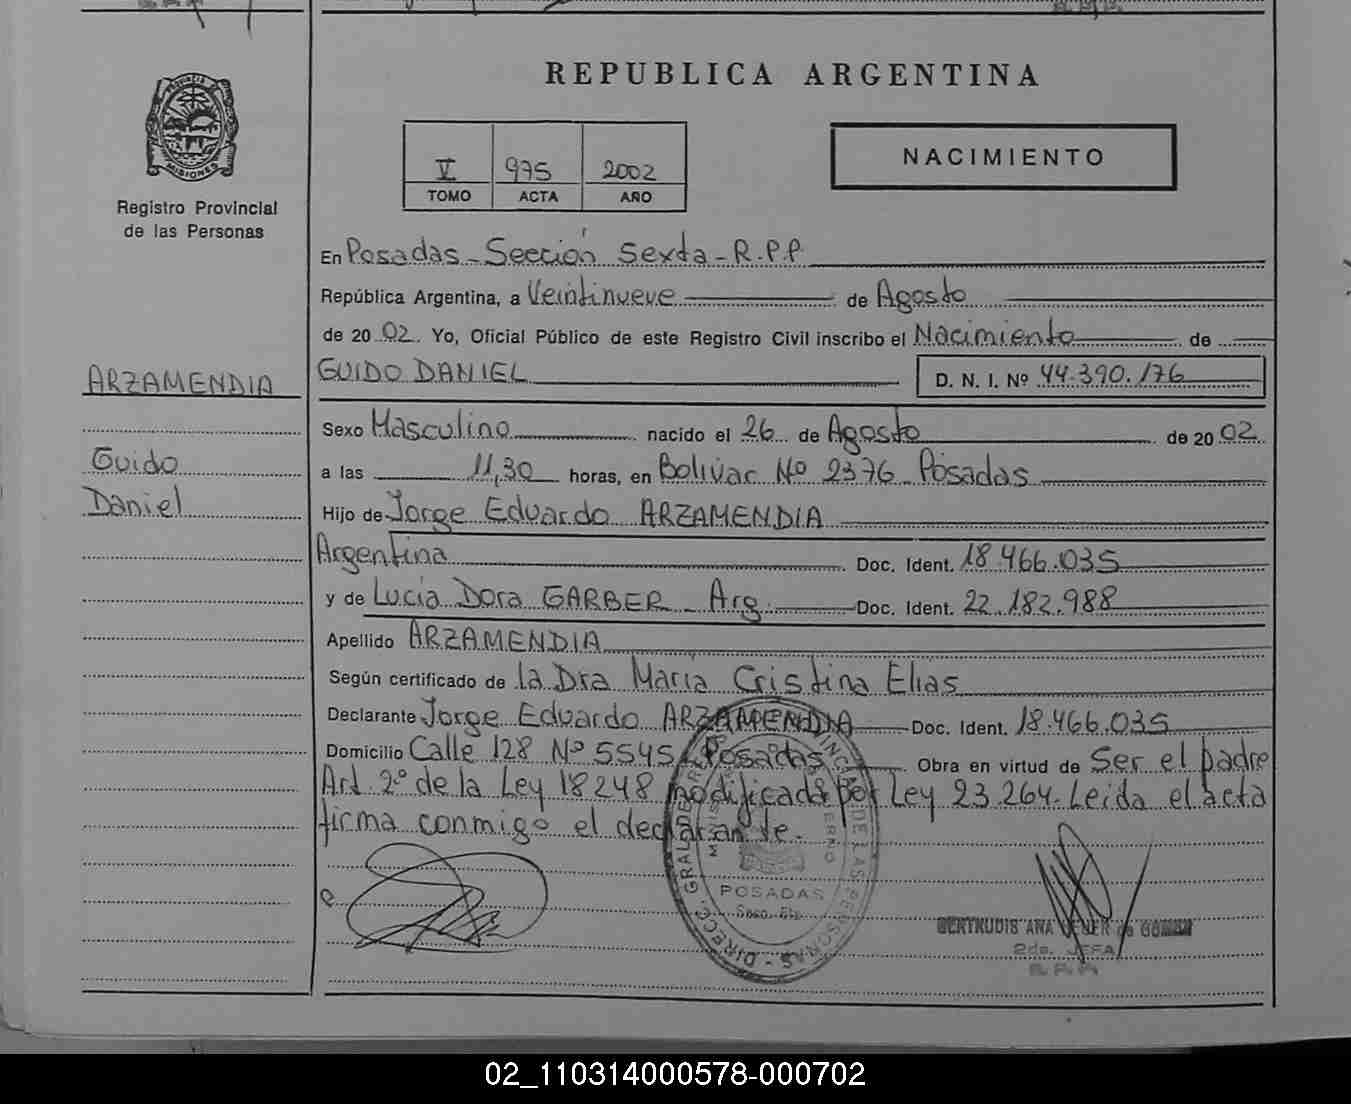 REPUBLICA ARGENTINA
PROVINCIA DE MISIONES
Registro Provincial
de las Personas
V 975 2002
TOMO ACTA AÑO
NACIMIENTO
En Posadas - Sección Sexta - R.P.P
República Argentina, a Veintinueve de Agosto
de 20 02. Yo, Oficial Público de este Registro Civil inscribo el Nacimiento de
GUIDO DANIEL D. N. I. Nº 44.390.176
ARZAMENDIA
Guido
Daniel
Sexo Masculino nacido el 26 de Agosto de 20 02
a las 11,30 horas, en Bolivar Nº 2376 - Posadas
Hijo de Jorge Eduardo ARZAMENDIA
Argentina Doc. Ident. 18.466.035
y de Lucia Dora GARBER - Arg. Doc. Ident. 22.182.988
Apellido ARZAMENDIA
Según certificado de la Dra Maria Cristina Elias
Declarante Jorge Eduardo ARZAMENDIA Doc. Ident. 18.466.035
Domicilio Calle 128 Nº 5545 - Posadas Obra en virtud de Ser el padre
Art. 2º de la Ley 18248 modificada por Ley 23.264. Leida el acta
firma conmigo el declarante.
POSADAS
DIRECC. GRAL. DE LAS PERSONAS
GERTRUDIS ANA DE
2da. JEFA
02_110314000578-000702